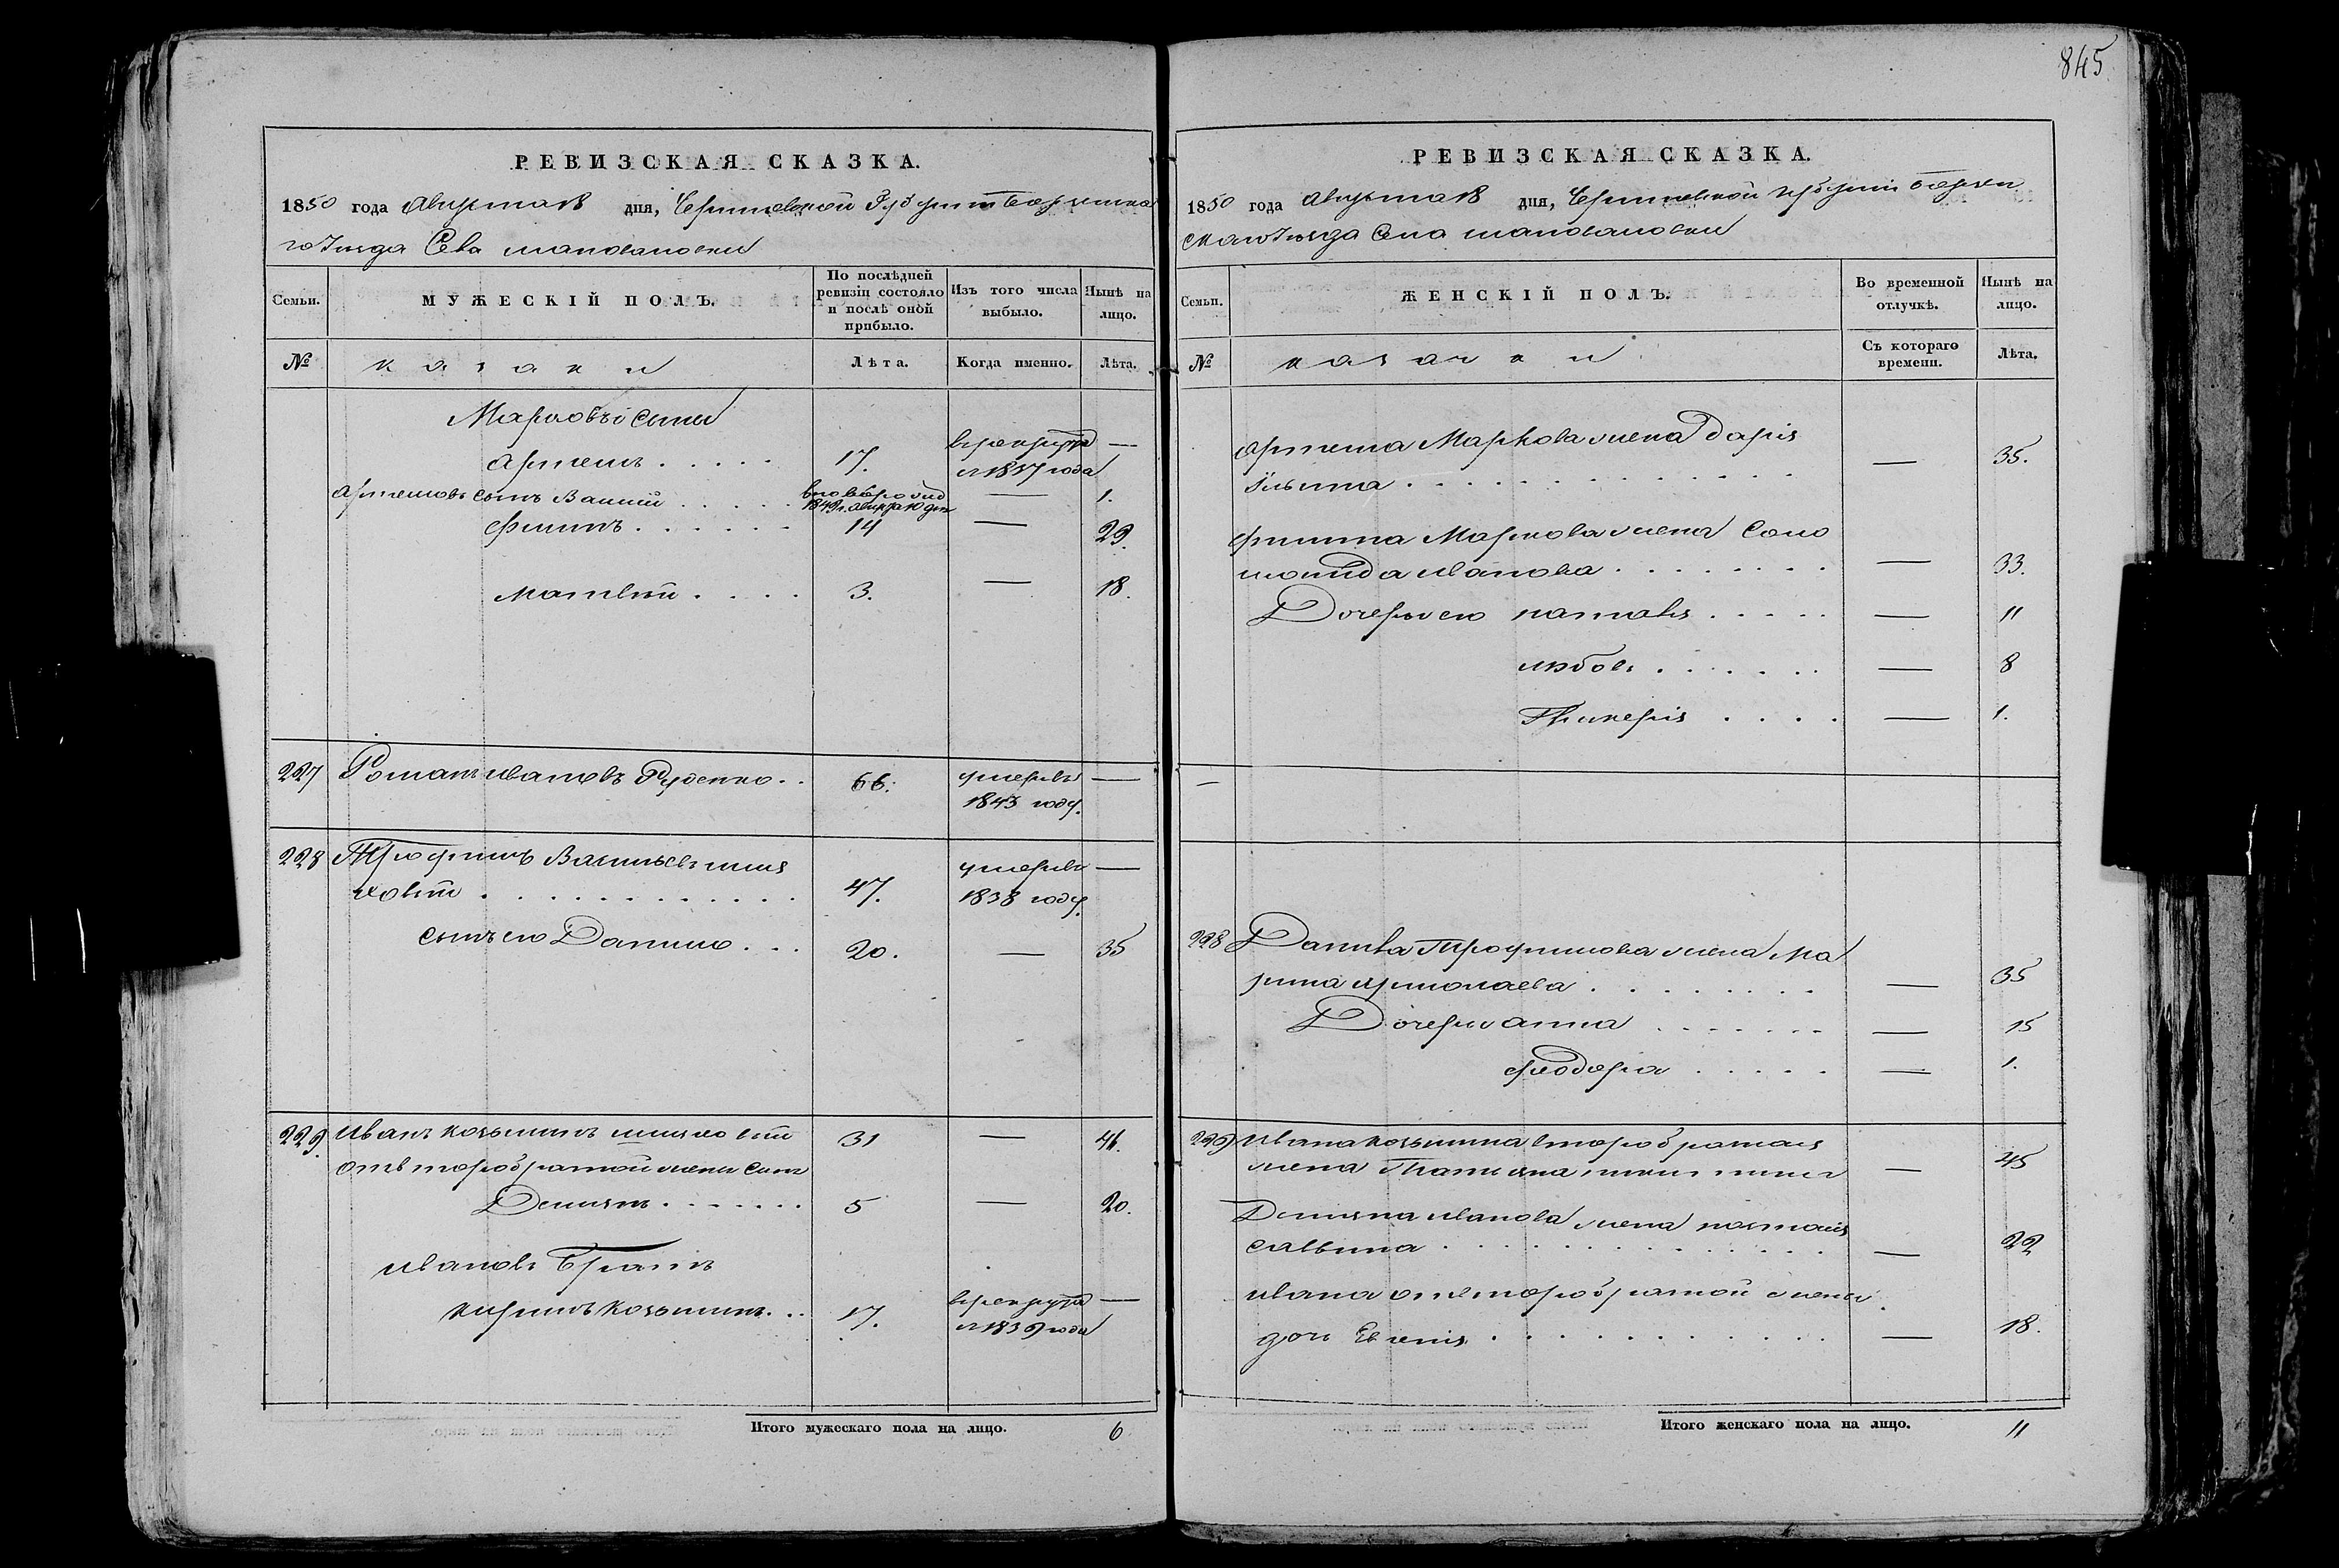 845
РЕВИЗСКАЯ СКАЗКА.
1850 года Августа 18 дня, Черниговской Губерніи Борзенска
го Уезда Села шаповаловки
Семьи.
МУЖЕСКІЙ ПОЛЪ.
По послѣдней ревизіи состояло и послѣ оной прибыло.
Изъ того числа выбыло.
Нынѣ на лицо.
№
казаки
Лѣта.
Когда именно.
Лѣта.
Марковы сыны
Артемъ 17. врекрута —
с 1837 года
Артемовъ сынъ Василій вновь рожд — 1.
Филипъ 14 — 29.
Матвій 3. — 18.
227 Романъ Ивановъ Руденко 66. умеръ в —
1843 году.
228 Трофимъ Васильевъ
47. умеръ в —
1838 году.
сынъ его Данило 20. — 35
229. Иванъ Козьминъ 31 — 46.
отвторобрачной жены сынъ
Демянъ 5 — 20.
Ивановъ братъ
Кирилъ Козьминъ 17. врекрута —
с 1839 года
Итого мужескаго пола на лицо. 6
РЕВИЗСКАЯ СКАЗКА.
1850 года Августа 18 дня, Черниговской Губерніи Борзен
скаго Уезда Села шаповаловки
Семьи.
ЖЕНСКІЙ ПОЛЪ.
Во временной отлучкѣ.
Нынѣ на лицо.
№
казачки
Съ котораго времени.
Лѣта.
Артема Маркова жена Дарія
Ильина — 35.
Филипа Маркова жена Соло
монида Иванова — 33.
Дочери его Наталія — 11
Любовь — 8
Гликерія — 1.
—
228 Данила Трофимова жена Ма
рина Ермолаева — 35
Дочери Анна — 15
Феодора — 1.
229 Ивана Козьмина второбрачная
жена Татіяна — 45
Демяна Иванова жена Наталія
Саввина — 22
Ивана отвторобрачной жены
дочь Евгенія — 18.
Итого женскаго пола на лицо. 11